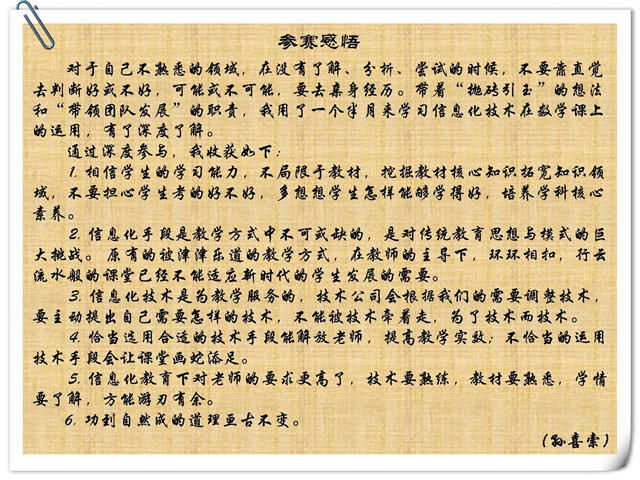 参赛感悟
对于自己不熟悉的领域，在没有了解、分析、尝试的时候，不要靠直觉
去判断好或不好，可能或不可能，要去亲身经历。带着“抛砖引玉”的想法
和“带领团队发展”的职责，我用了一个半月来学习信息化技术在数学课上
的运用，有了深度了解。
通过深度参与，我收获如下：
1.相信学生的学习能力，不局限于教材，挖掘教材核心知识拓宽知识领
域，不要担心学生考的好不好，多想想学生怎样能够学得好，培养学科核心
素养。
2.信息化手段是教学方式中不可或缺的，是对传统教育思想与模式的巨
大挑战。原有的被津津乐道的教学方式，在教师的主导下，环环相扣，行云
流水般的课堂已经不能适应新时代的学生发展的需要。
3.信息化技术是为教学服务的，技术公司会根据我们的需要调整技术，
要主动提出自己需要怎样的技术，不能被技术牵着走，为了技术而技术。
4.恰当选用合适的技术手段能解放老师，提高教学实效；不恰当的运用
技术手段会让课堂画蛇添足。
5.信息化教育下对老师的要求更高了，技术要熟练，教材要熟悉，学情
要了解，方能游刃有余。
6.功到自然成的道理亘古不变。
（孙喜索）